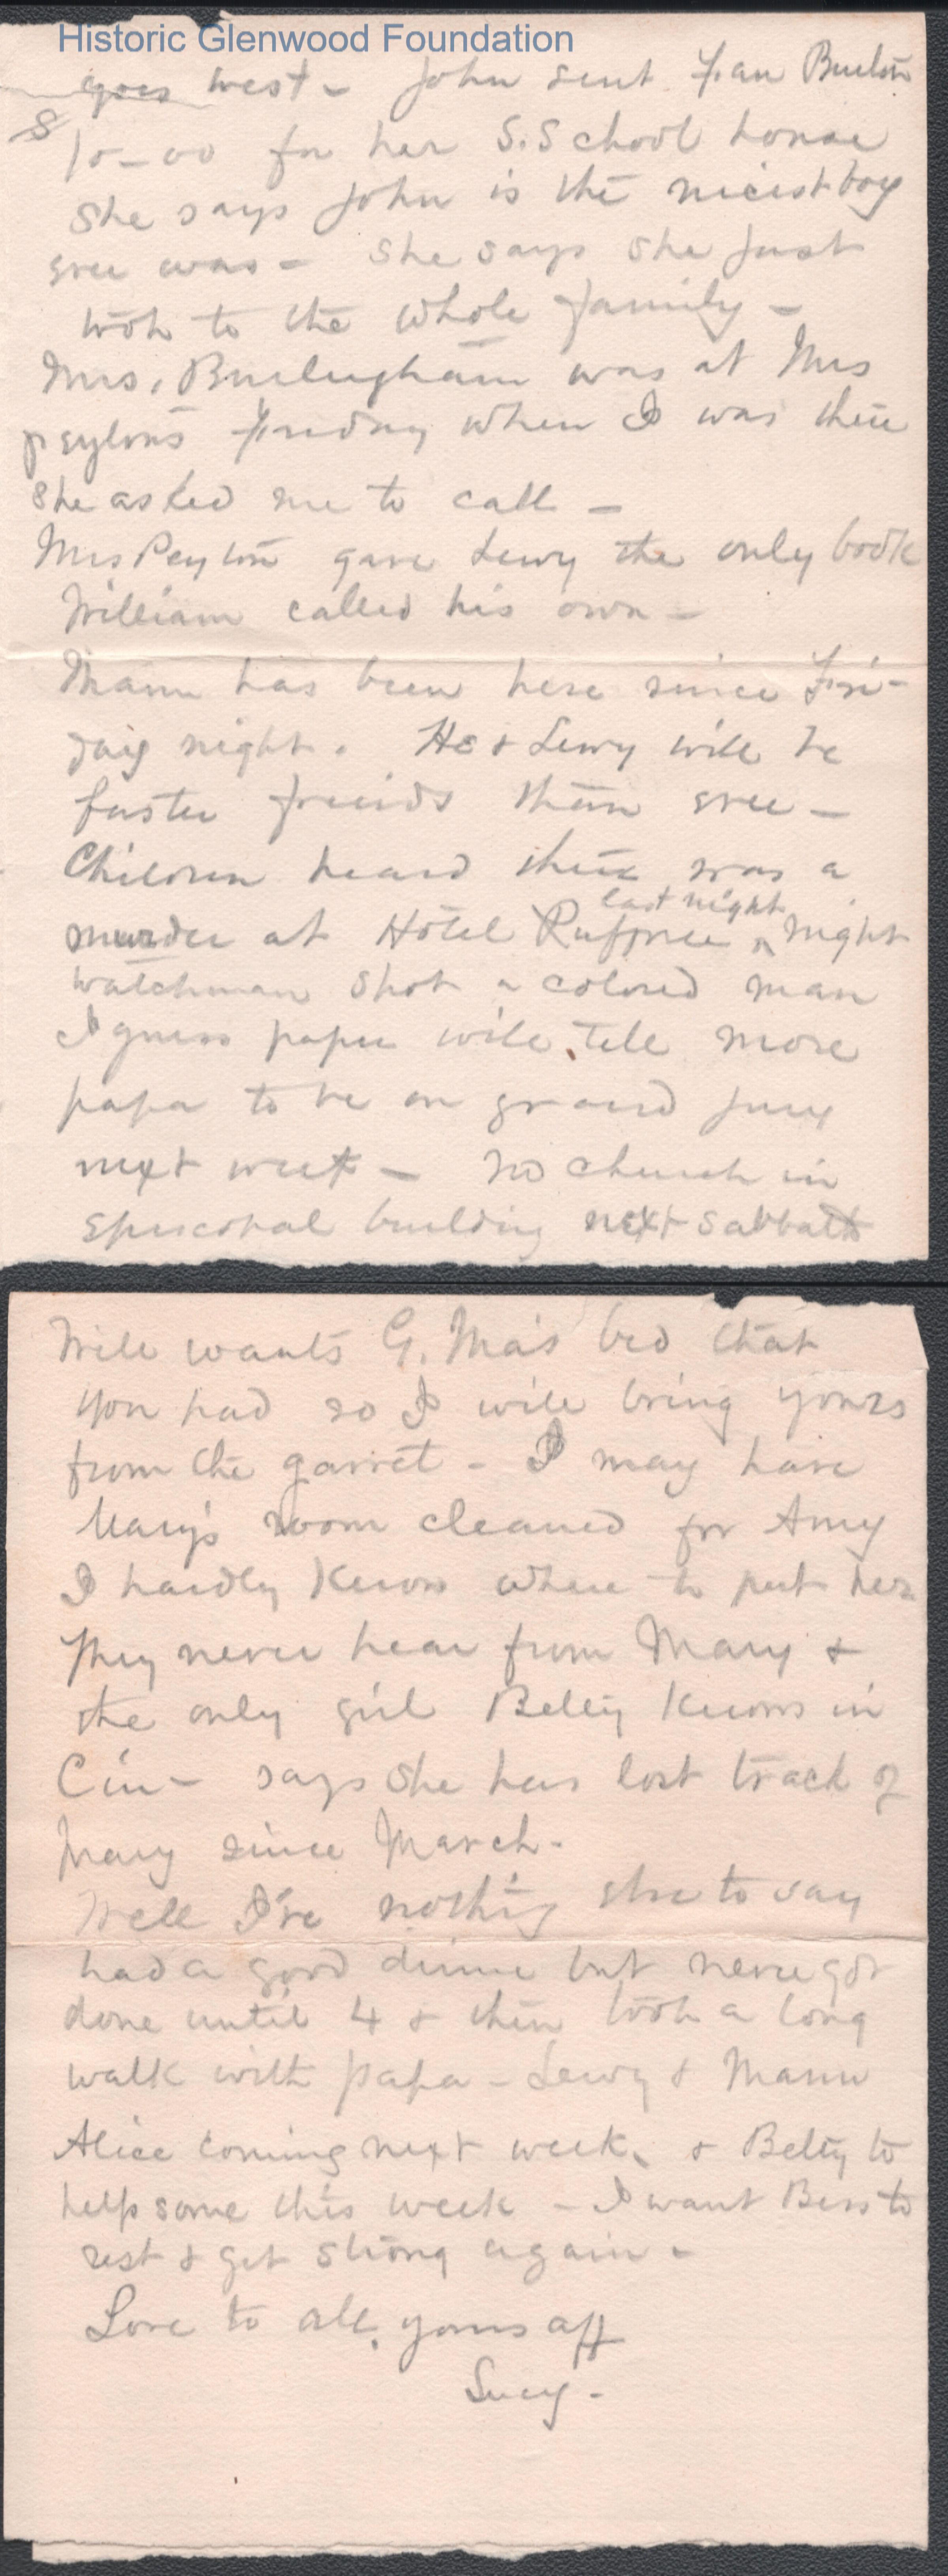 Historic Glenwood Foundation
goes west - John sent Fan Burlew
$10-00 for her S.School house
She says John is the nicest boy
ever was - She says she just
took to the whole family -
Mrs. Burlingham was at Mrs
Peytons Friday when I was there
she asked me to call -
Mrs Peyton gave Lewy the only book
William called his own -
Mann has been here since Fri-
day night. He & Lewy will be
faster friends than ever -
Children heard there was a
last night
murder at Hotel Ruffner ^ Night
watchman shot a colored man
I guess paper will tell more
papa to be on grand jury
next week - no church in
Episcopal building next Sabbath
Will wants G. Ma's bed that
you had so I will bring yours
from the garret - I may have
Mary's room cleaned for Amy
I hardly know where to put her
They never hear from Mary &
the only girl Betty knows in
Cin - says she has lost track of
Mary since March -
Well I've nothing else to say
had a good dinner but never got
done until 4 & then took a long
walk with papa - Lewy & Mann
Alice coming next week, & Betty to
help some this week - I want Bess to
rest & get strong again -
Love to all, yours aff
Lucy -